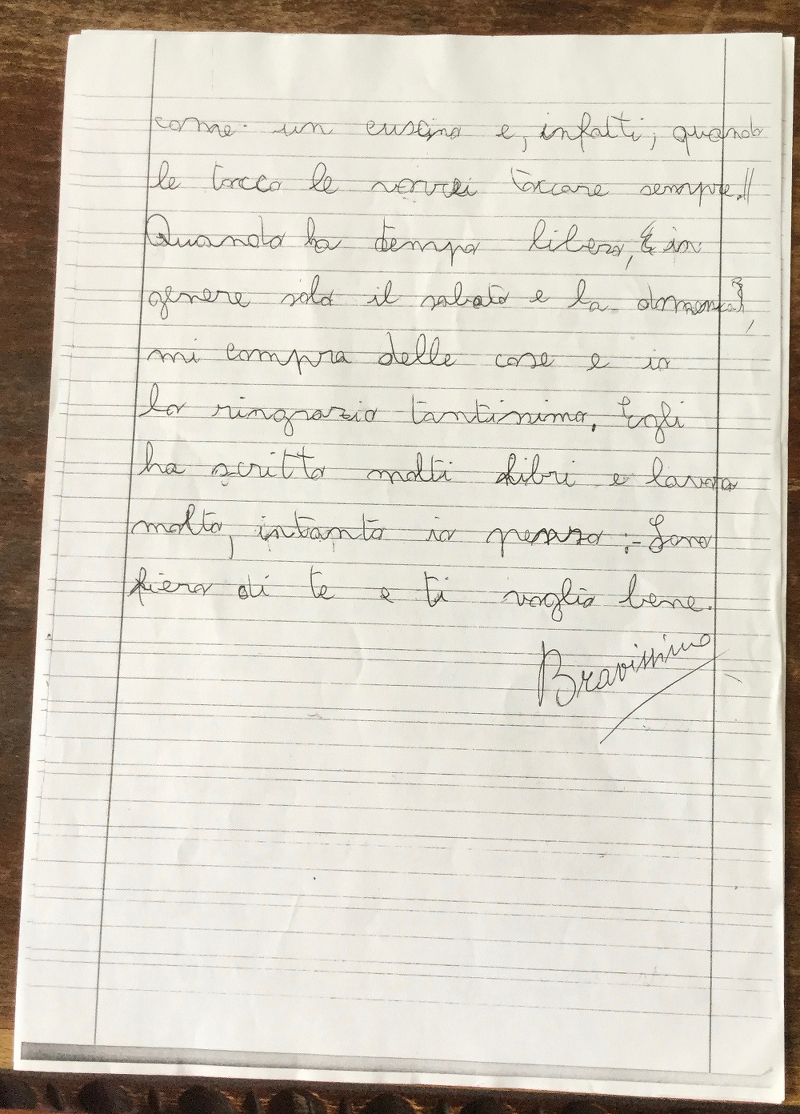 come un cuscino e, infatti, quando
le tocco le vorrei toccare sempre!!
Quando ha tempo libero, in
genere solo il sabato e la domenica,
mi compra delle cose e io
lo ringrazio tantissimo. Egli
ha scritto molti libri e lavora
molto, intanto io penso:-Sono
fiero di te e ti voglio bene.
Bravissimo